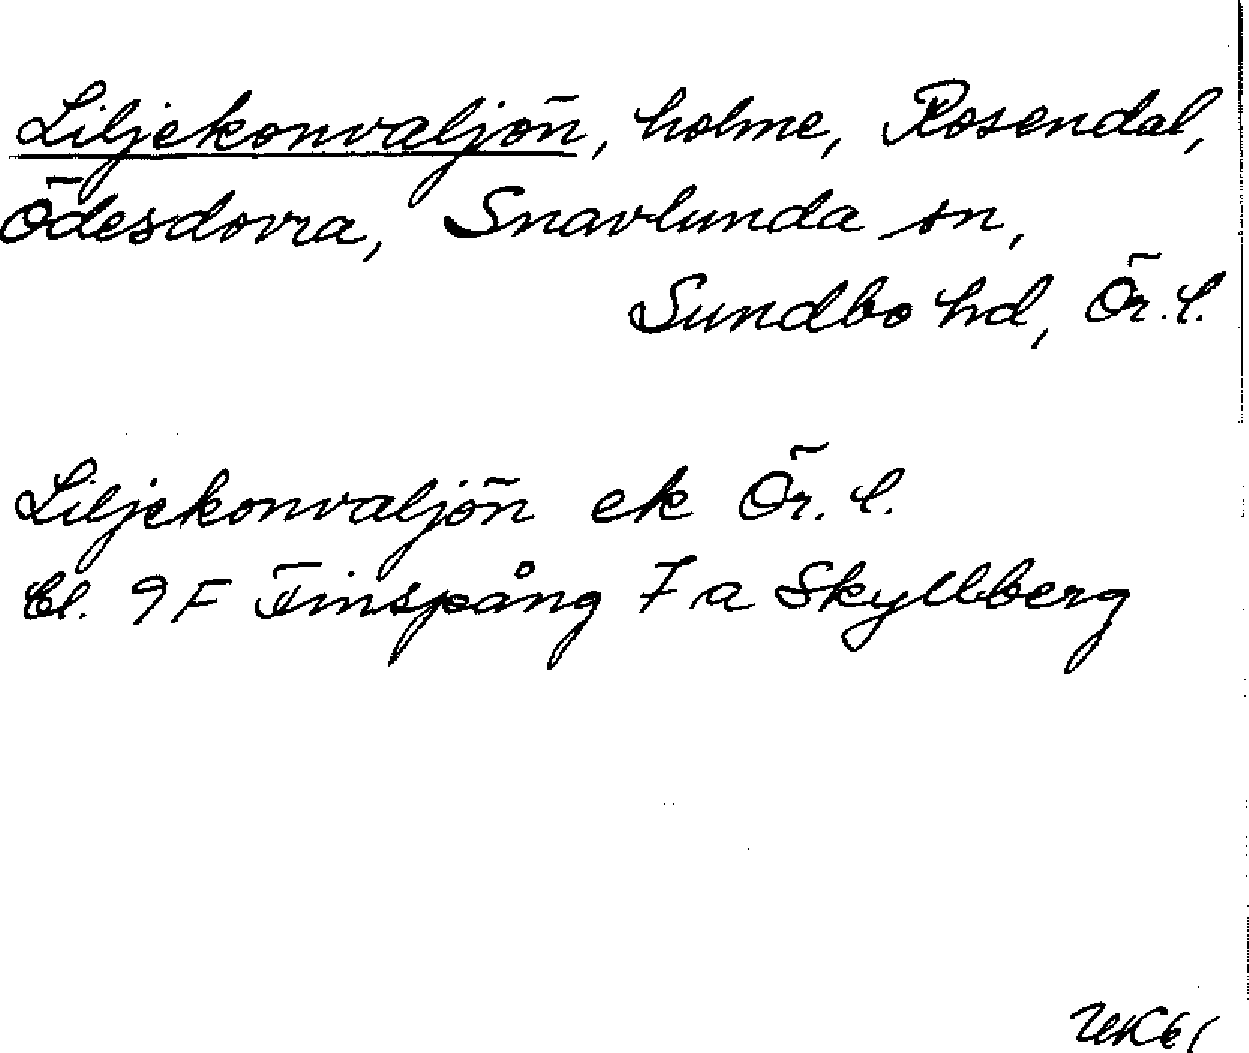 Liljekonvaljön, holme, Rosendal,
Ödesdovra, Snavlunda sn,
Sundbo hd, Ör. l.
Liljekonvaljön ek Ör. l.
bl. 9F Finspång 7a Skyllberg